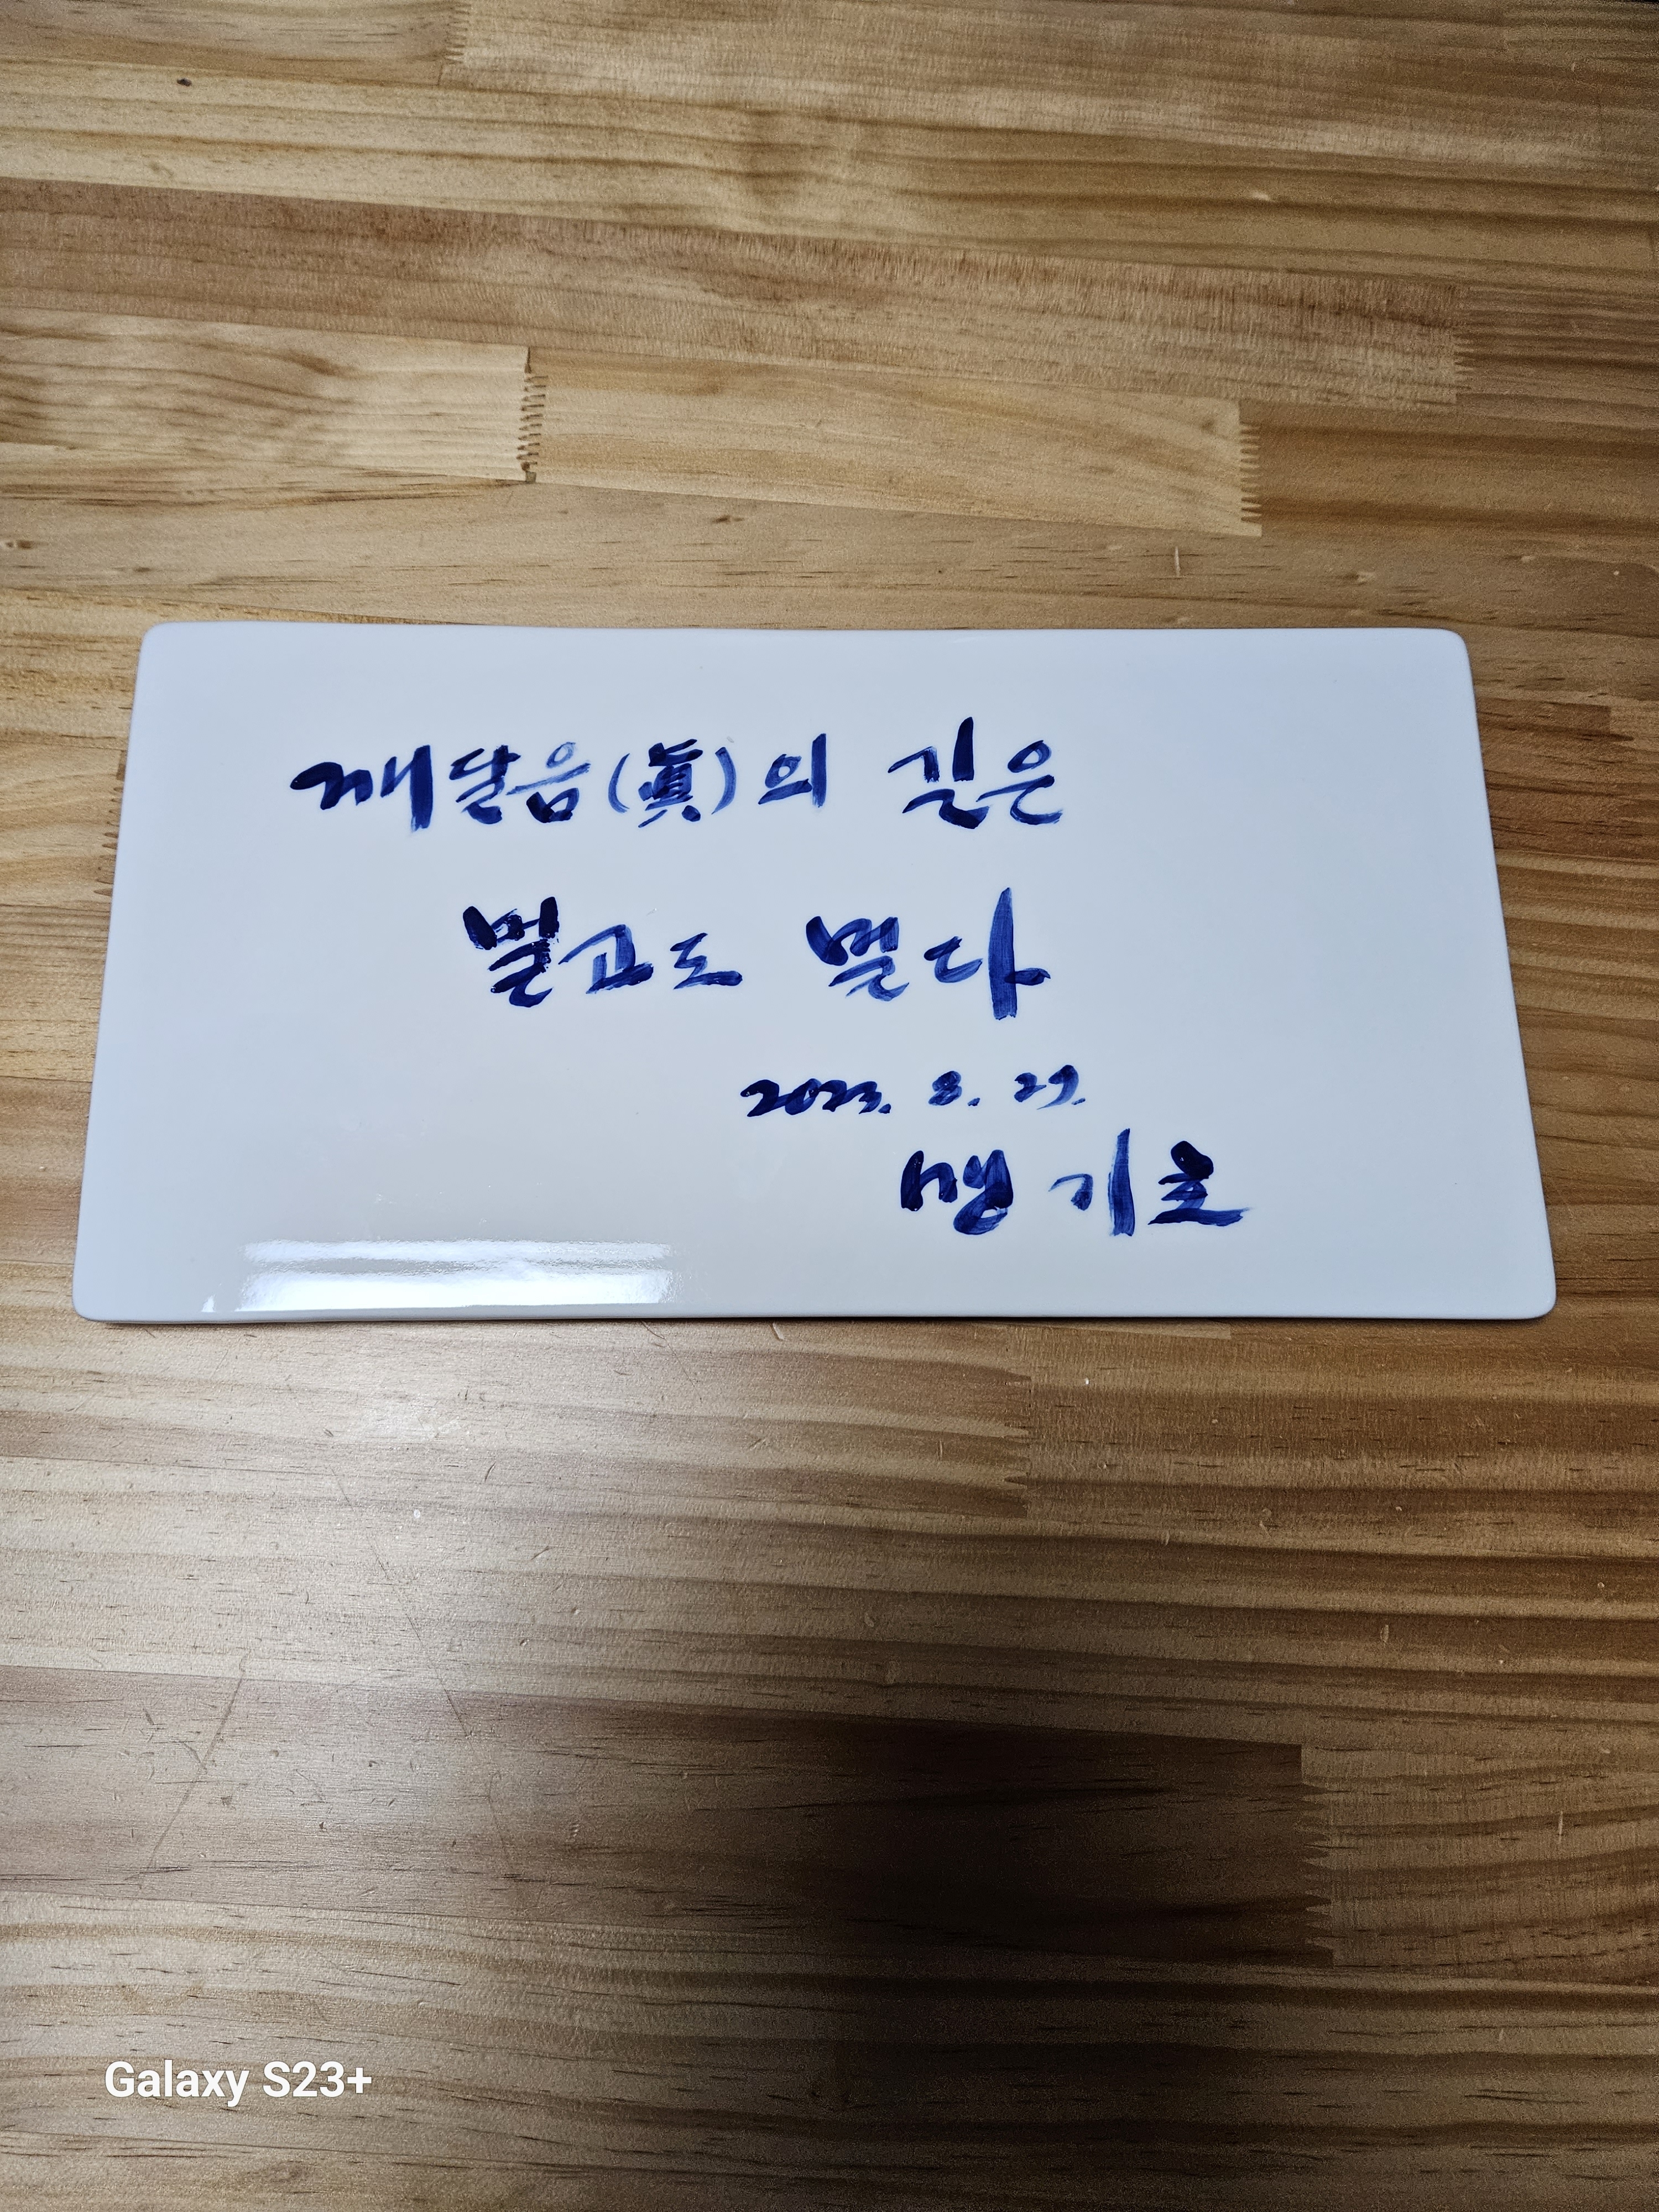 깨달음(眞)의 길은
멀고도 멀다
2023. 8. 29.
맹기호
Galaxy S23+